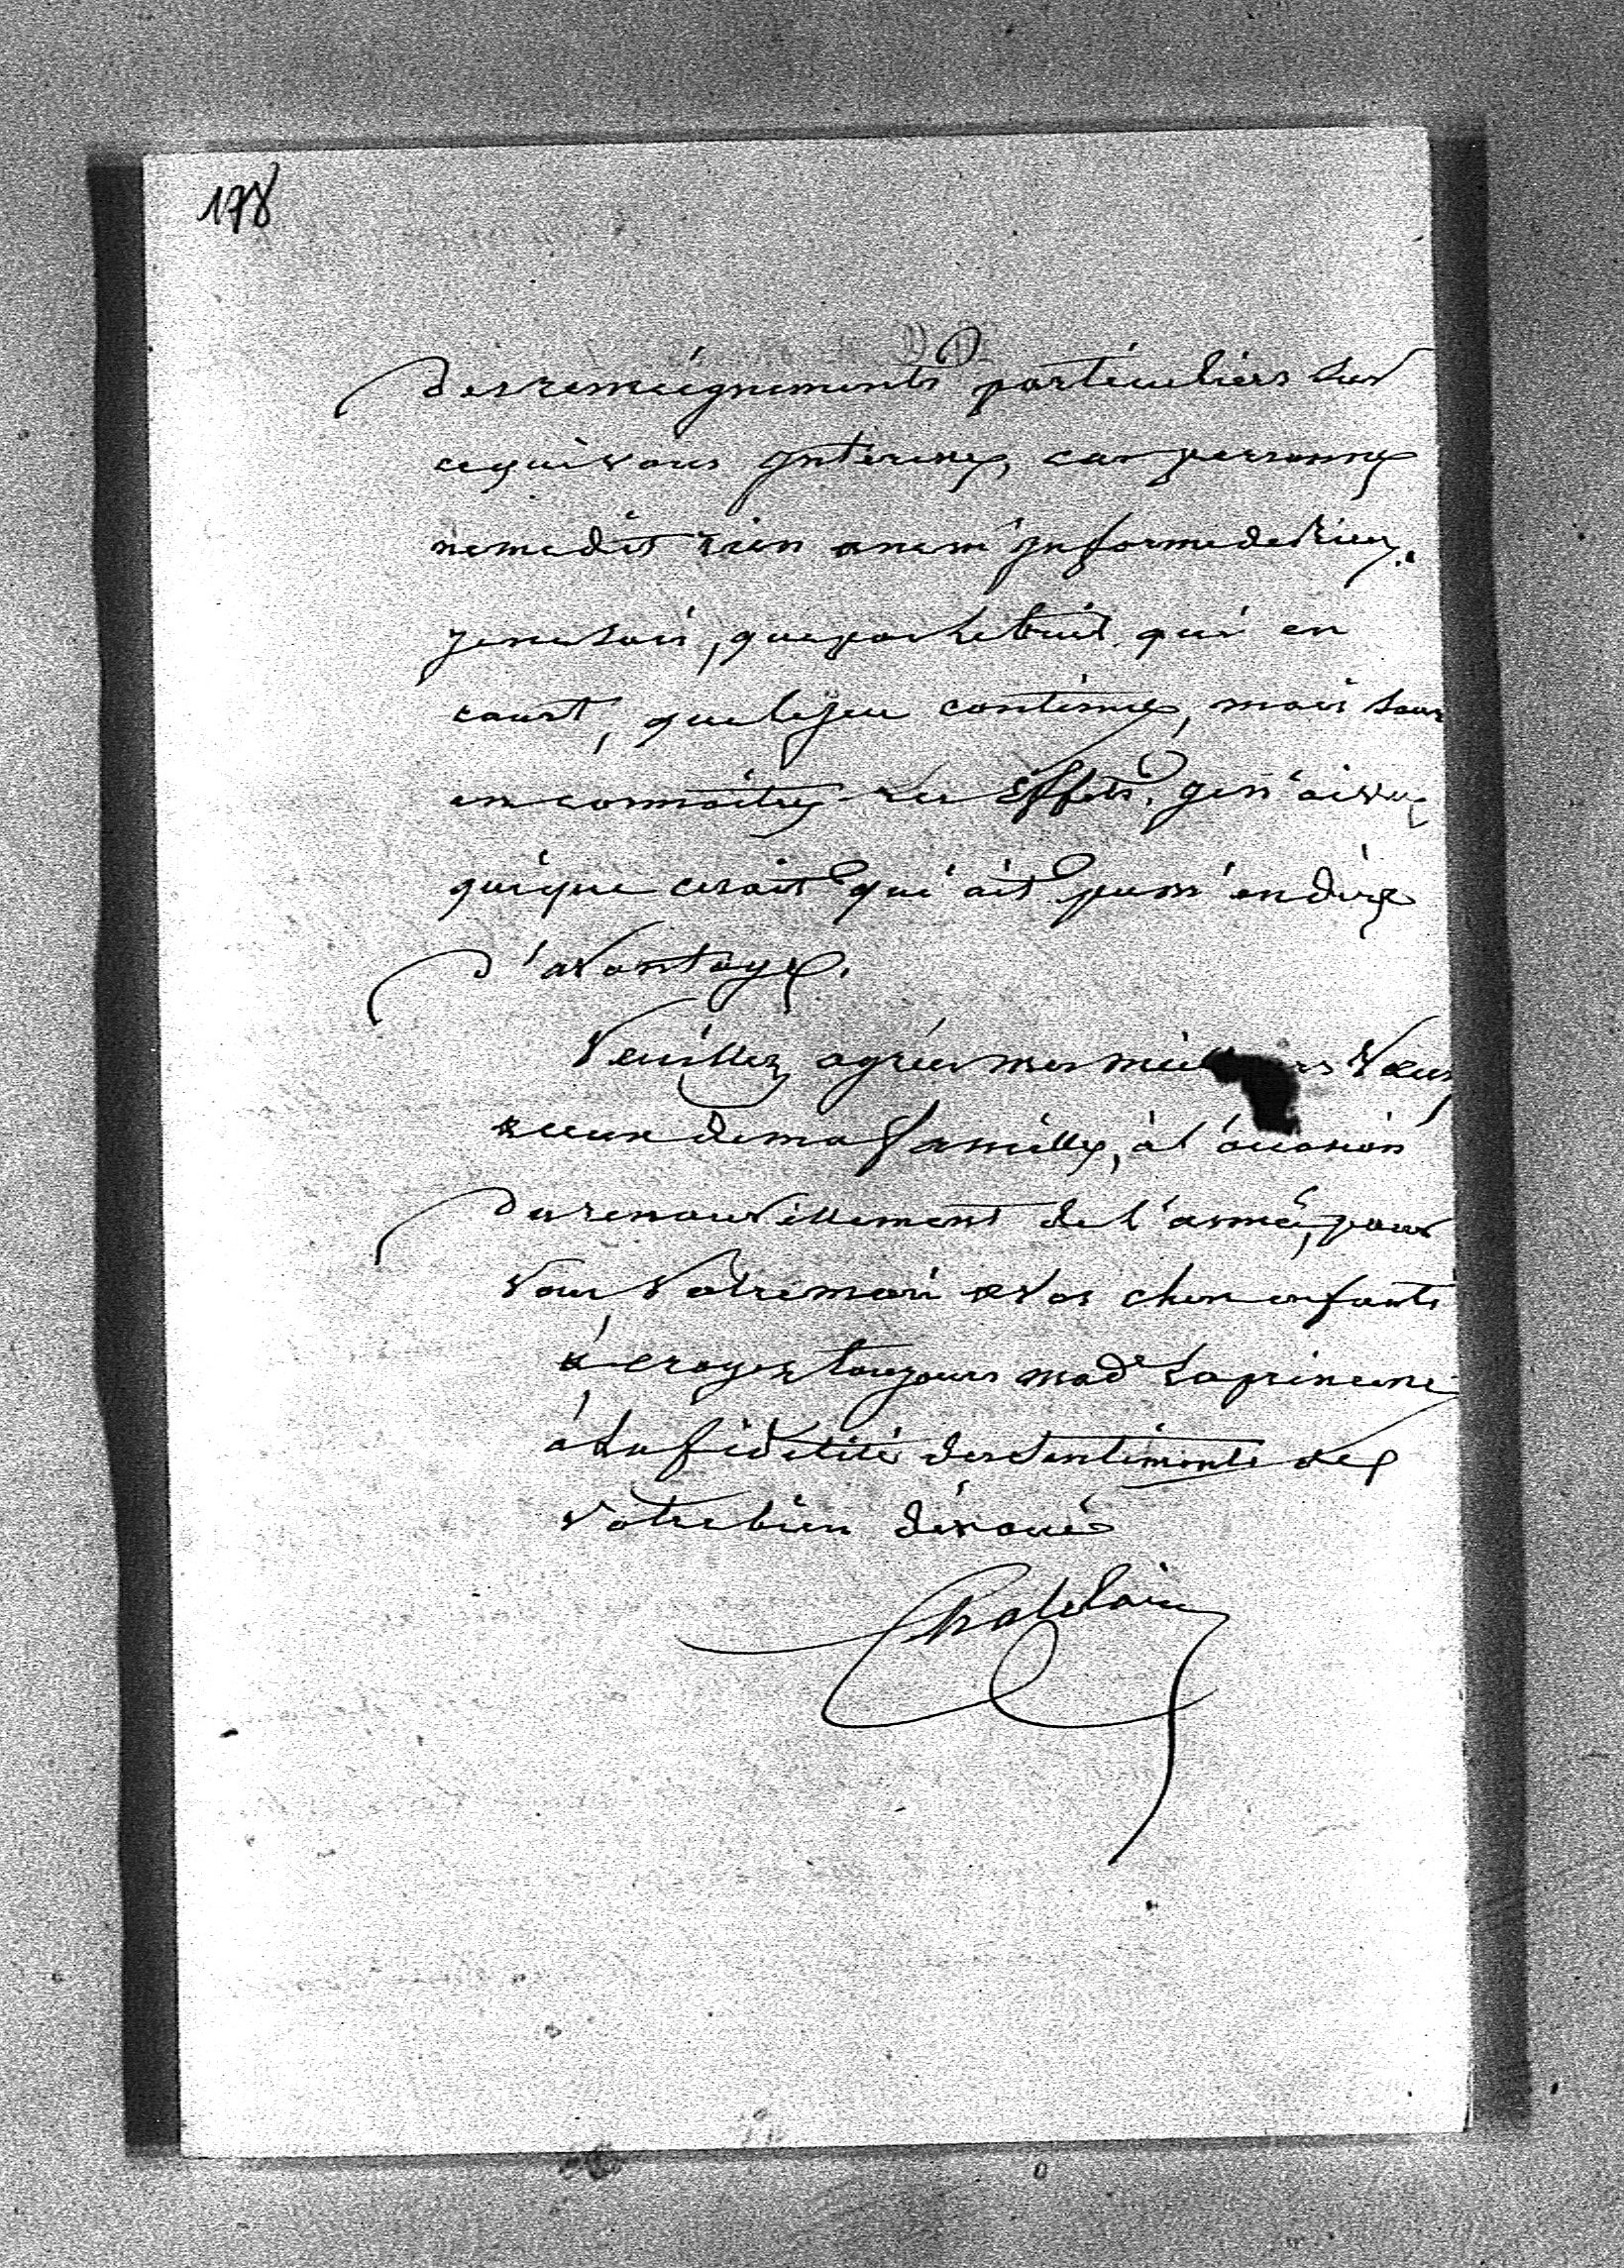 178
des renseignements particuliers sur
ce qui vous Intéresse, car personne
ne me dit rien & ne m'Informe de Rien.
je ne sais, que par le bruit qui en
court, que le jeu continue, mais sans
en connaître les Effets, je n'ai vu
qui que ce soit qui ait pu m'en dire
d'avantage.
Veuillez agréer mes meilleurs Vœux
& ceux de ma famille, à l'occasion
du renouvellement de l'année, pour
Vous Votre mari & Vos chers enfants
& croyez toujours Made la princesse
à la fidélité des Sentiments de
votre bien dévoué
Chatelain